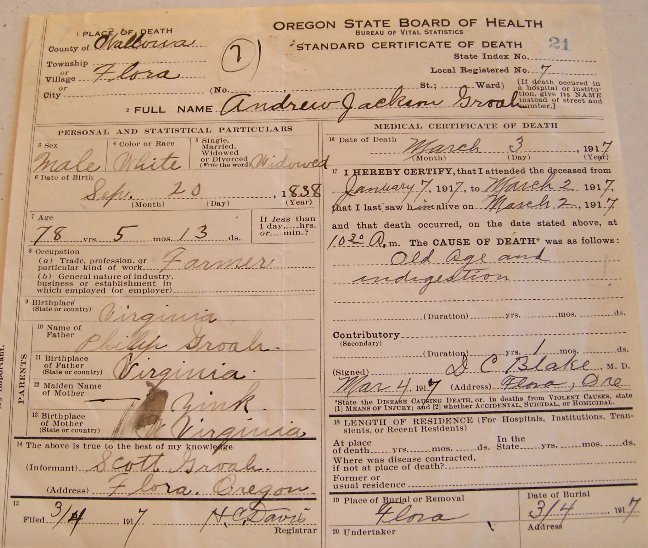 1 PLACE OF DEATH
County of Wallowa
Township
or
Village Flora
or
City
7
OREGON STATE BOARD OF HEALTH
BUREAU OF VITAL STATISTICS
STANDARD CERTIFICATE OF DEATH 21
State Index No.
Local Registered No. 7
(No. St.; Ward)
[If death occured in a hospital or institution, give its NAME instead of street and number.]
2 FULL NAME Andrew Jackson Groah
PERSONAL AND STATISTICAL PARTICULARS
3 Sex Male
4 Color or Race White
5 Single, Married, Widowed or Divorced (Write the word) Widowed
6 Date of Birth
Sep. 20, 1838
(Month) (Day) (Year)
7 Age
78 yrs. 5 mos. 13 ds.
If less than 1 day, hrs. or min.?
8 Occupation
(a) Trade, profession, or particular kind of work Farmer
(b) General nature of industry, business or establishment in which employed (or employer)
9 Birthplace
(State or country) Virginia
PARENTS
10 Name of
Father Philip Groah.
11 Birthplace
of Father
(State or country) Virginia.
12 Maiden Name
of Mother — Zink
13 Birthplace
of Mother
(State or country) Virginia
14 The above is true to the best of my knowledge
(Informant) Scott Groah.
(Address) Flora. Oregon
15
Filed 3/4 1917 H.C. Davis
Registrar
MEDICAL CERTIFICATE OF DEATH
16 Date of Death March 3, 1917
(Month) (Day) (Year)
17 I HEREBY CERTIFY, that I attended the deceased from
January 7, 1917, to March 2, 1917
that I last saw him alive on March 2, 1917
and that death occurred, on the date stated above, at
10 30 A. m. The CAUSE OF DEATH* was as follows:
Old Age and
indigestion
(Duration) yrs. mos. ds.
Contributory
(Secondary)
(Duration) yrs. 1 mos. ds.
(Signed) D C Blake, M. D.
Mar 4 1917 (Address) Flora, Ore
*State the DISEASE CAUSING DEATH, or, in deaths from VIOLENT CAUSES, state
[1] MEANS OF INJURY; and [2] whether ACCIDENTAL, SUICIDAL, or HOMICIDAL.
18 LENGTH OF RESIDENCE (For Hospitals, Institutions, Transients, or Recent Residents)
At place of death yrs. mos. ds. In the State yrs. mos. ds.
Where was disease contracted,
if not at place of death?
Former or
usual residence
19 Place of Burial or Removal
Flora
Date of Burial
3/4 1917
20 Undertaker
Address